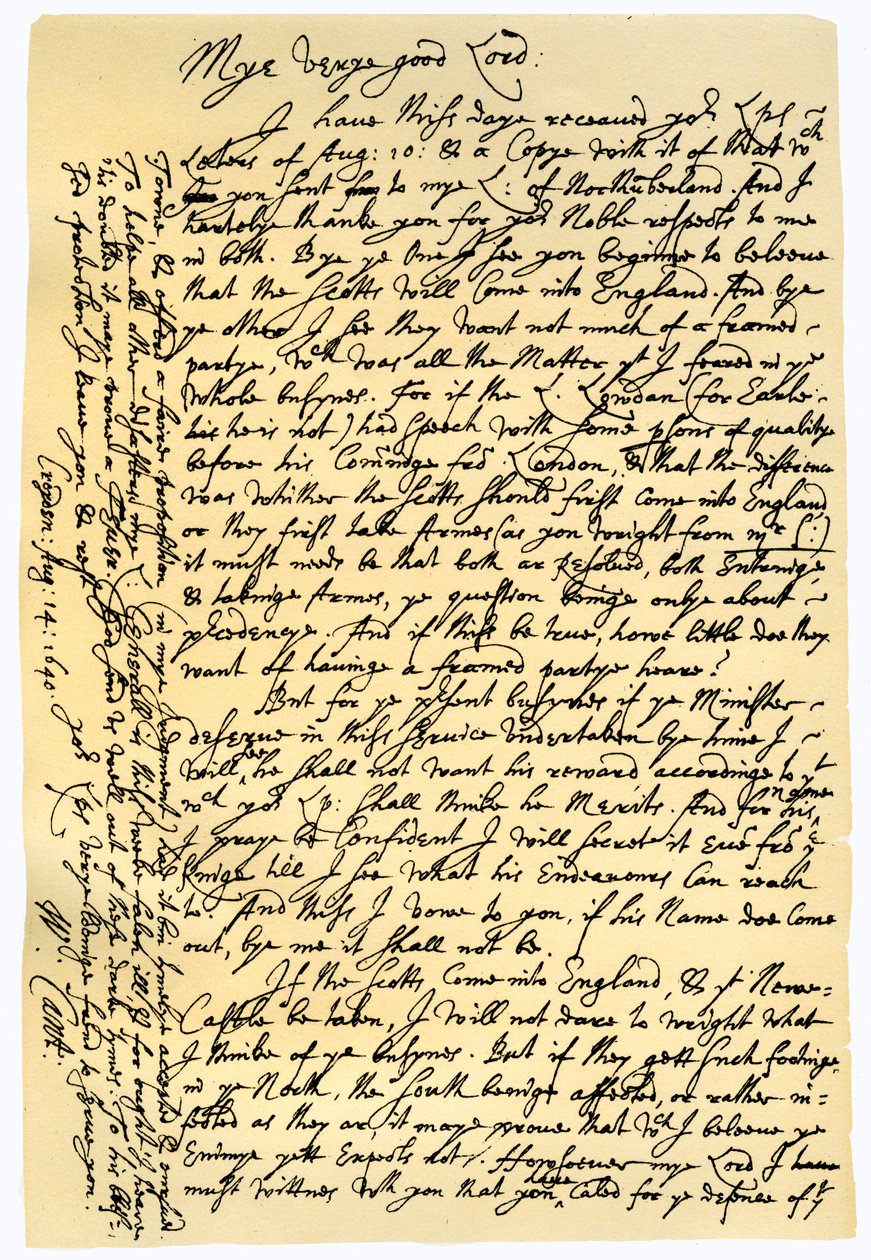 Mye verye good Lord:
I have thiss daye receaved yor Lps
Letters of Aug: 10: & a Copye with it of that wch
you sent to mye L: of Northūberland. And I
hartelye thanke you for yor Noble respects to me
in both. Bye ye One I see you beginne to beleeve
that the Scotts will Come into England. And bye
ye other I see they want not much of a framed
partye, wch was all the Matter yt I feared in ye
whole busynes. For if the L. Lowdan (for Earle
his he is not) had speech with some psons of qualitye
before his Com̄inge frō London, & that the difference
was whither the Scotts should first come into England
or they first take Armes (as you wright from mr S:)
it must needs be that both ar resolved, both Entringe
& takinge Armes, ye question beinge onlye about
precedencye. And if thiss be true, howe little doe they
want of havinge a framed partye heare?
But for ye present busynes if ye Minister
deserve in thiss service undertaken bye hime I
will see he shall not want his reward accordinge to yt
wch yor Lp: shall thinke he Merits. And for his name
I praye be Confident I will secret it even frō ye
Kinge till I see what his Endeavours Can reach
to. And thiss I vowe to you, if his Name doe Come
out, bye me it shall not be.
If the Scotts Come into England, & yt Newe=
Castle be taken, I will not dare to wright what
I thinke of ye busynes. But if they gett such footinge
in ye North, the south beinge affected, or rather in=
fected as they ar, it maye prove that wch I beleeve ye
Enimye yett Expects not. Howsoever mye Lord I have
must wittnes wth you that you have Caled for ye defence of yt
Towne, & offerd a faire proposition (in mye Judgment) had it bin tymelye accepted & embraced.
To helpe all other disasters mye L: Generall is thiss weeke falen ill, & for ought I heare
'tis doubted it maye prove a Fever. God send us well out of these darke tymes. To his bless=
sed protection I leave you & rest
yor Lps verye Lovinge freind to serve you.
W. Cant.
Croyden: Aug: 14: 1640.